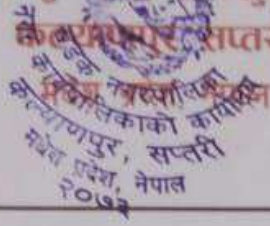 कल्याणपुर, सप्तरी
खडक नगरपालिका
नगर कार्यपालिकाको कार्यालय
कल्याणपुर, सप्तरी
मधेश प्रदेश, नेपाल
२०७३